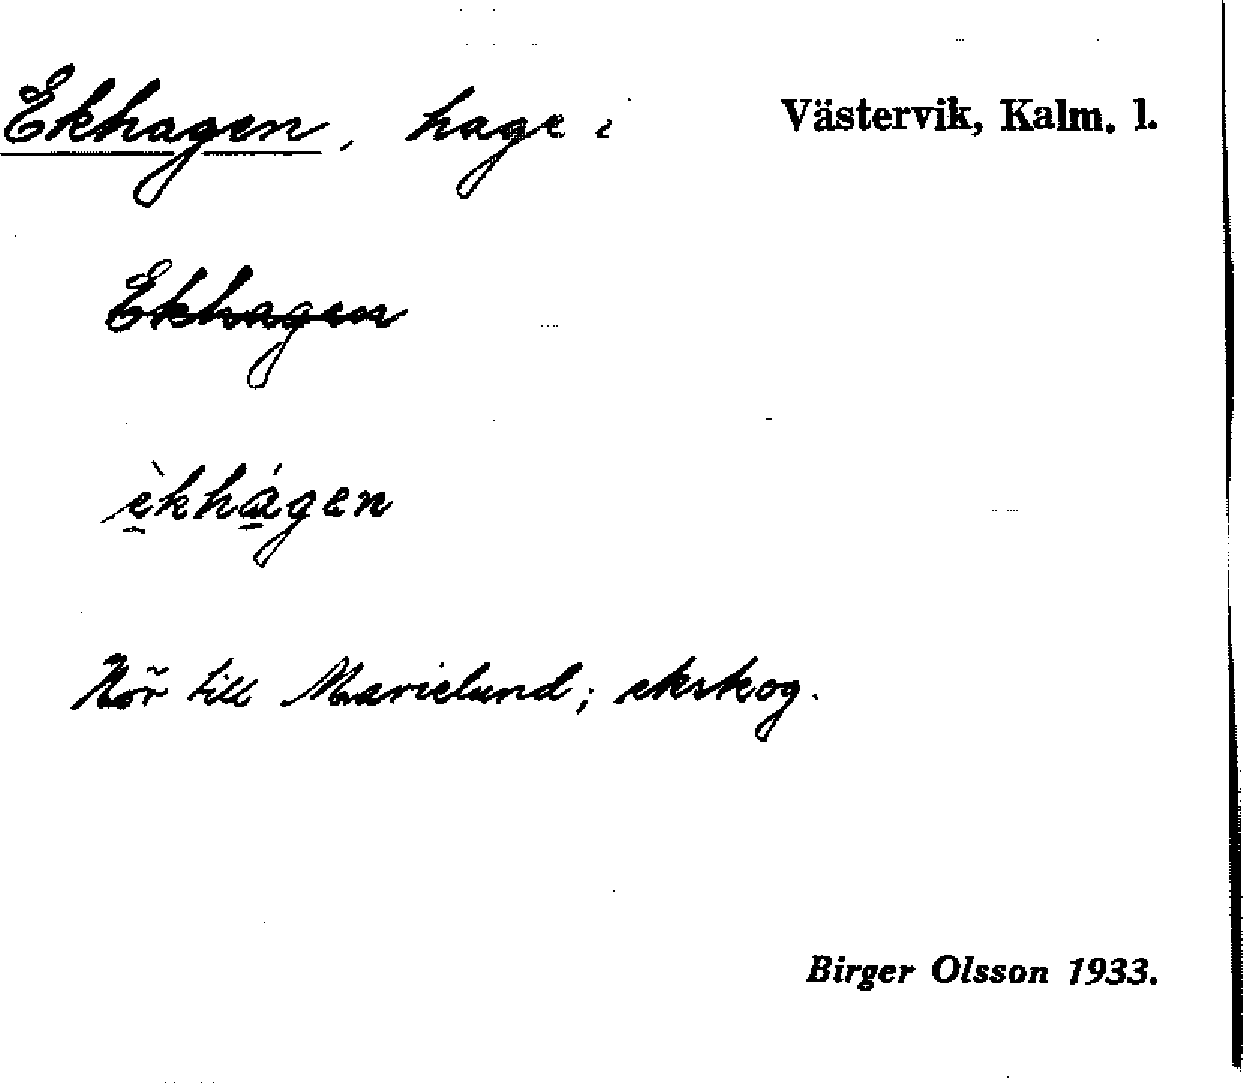 Ekhagen, hage i Västervik, Kalm. l.
Ekhagen
èkhágen
Hör till Marielund; ekskog.
Birger Olsson 1933.